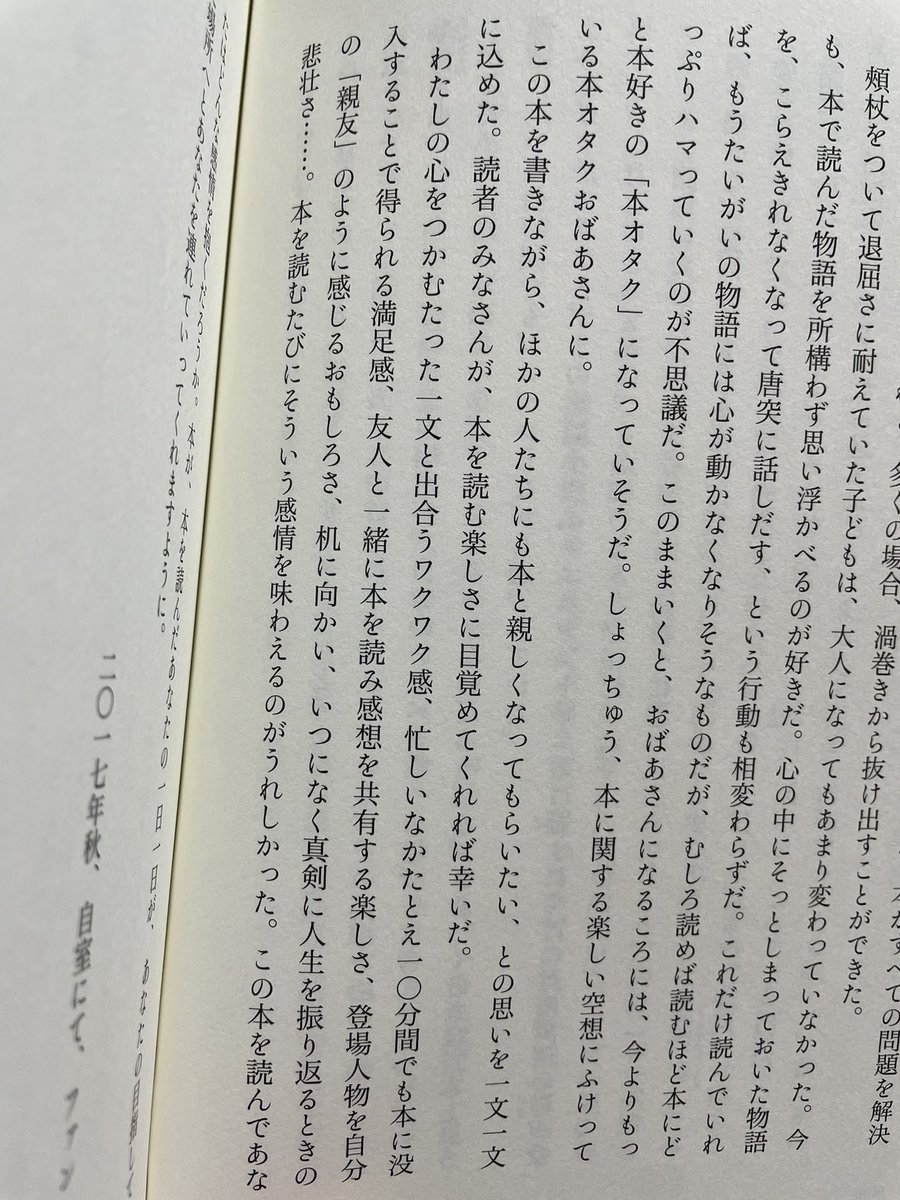 多くの場合、渦巻きから抜け出すことができた。
本がすべての問題を解決
頰杖をついて退屈さに耐えていた子どもは、大人になってもあまり変わっていなかった。今
も、本で読んだ物語を所構わず思い浮かべるのが好きだ。心の中にそっとしまっておいた物語
を、こらえきれなくなって唐突に話しだす、という行動も相変わらずだ。これだけ読んでいれ
ば、もうたいがいの物語には心が動かなくなりそうなものだが、むしろ読めば読むほど本にど
っぷりハマっていくのが不思議だ。このままいくと、おばあさんになるころには、今よりもっ
と本好きの「本オタク」になっていそうだ。しょっちゅう、本に関する楽しい空想にふけって
いる本オタクおばあさんに。
この本を書きながら、ほかの人たちにも本と親しくなってもらいたい、との思いを一文一文
に込めた。読者のみなさんが、本を読む楽しさに目覚めてくれれば幸いだ。
わたしの心をつかむたった一文と出合うワクワク感、忙しいなかたとえ一〇分間でも本に没
入することで得られる満足感、友人と一緒に本を読み感想を共有する楽しさ、登場人物を自分
の「親友」のように感じるおもしろさ、机に向かい、いつになく真剣に人生を振り返るときの
悲壮さ……。本を読むたびにそういう感情を味わえるのがうれしかった。この本を読んであな
たはどんな感情を抱くだろうか。本が、本を読んだあなたの一日一日が、あなたの目指して
へとあなたを連れていってくれますように。
二〇一七年秋、自室にて、ファン